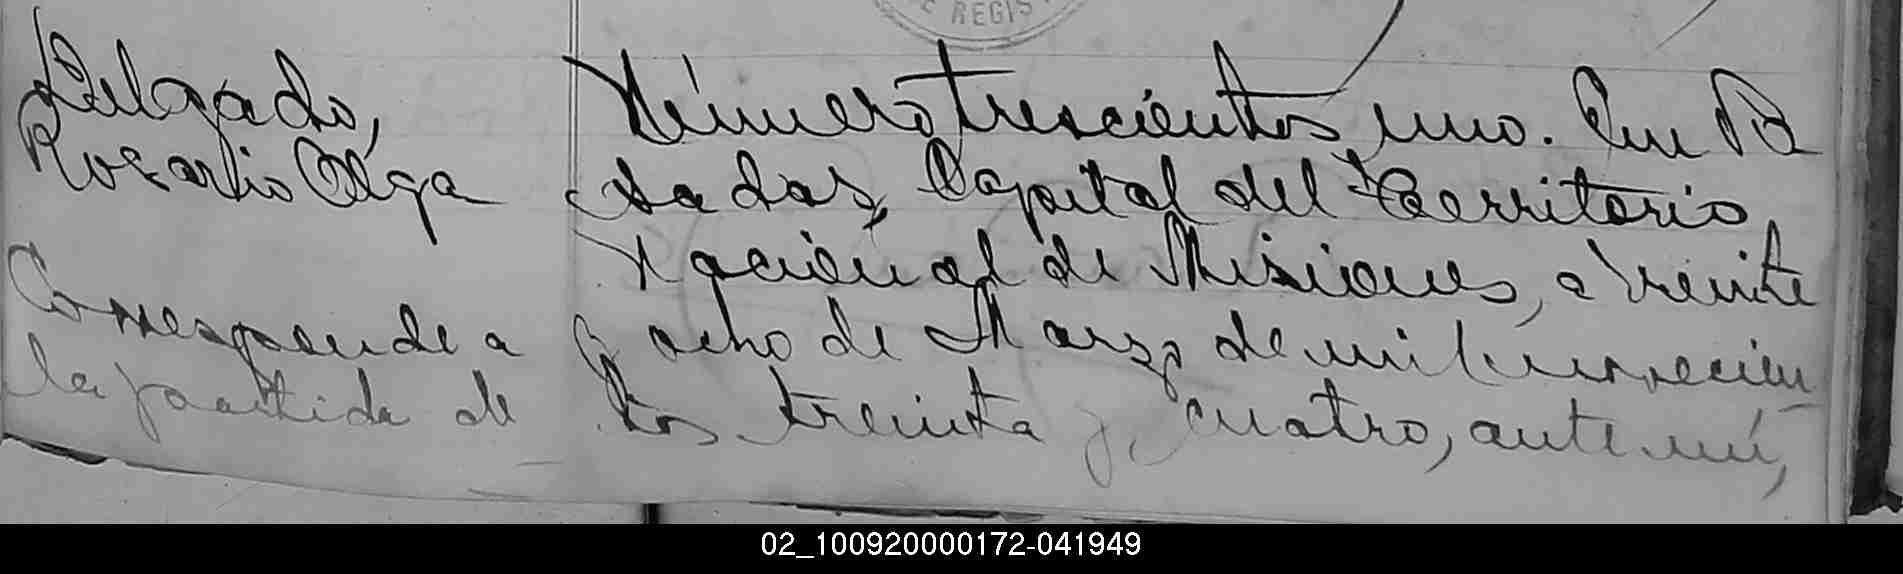 E REGIS
Delgado,
Rosario Olga
Corresponde a
la partida de
Número trescientos uno. En Po
sadas, Capital del Territorio
Nacional de Misiones, a veinte
y ocho de Marzo de mil novecien
tos treinta y cuatro, ante mí,
02_100920000172-041949